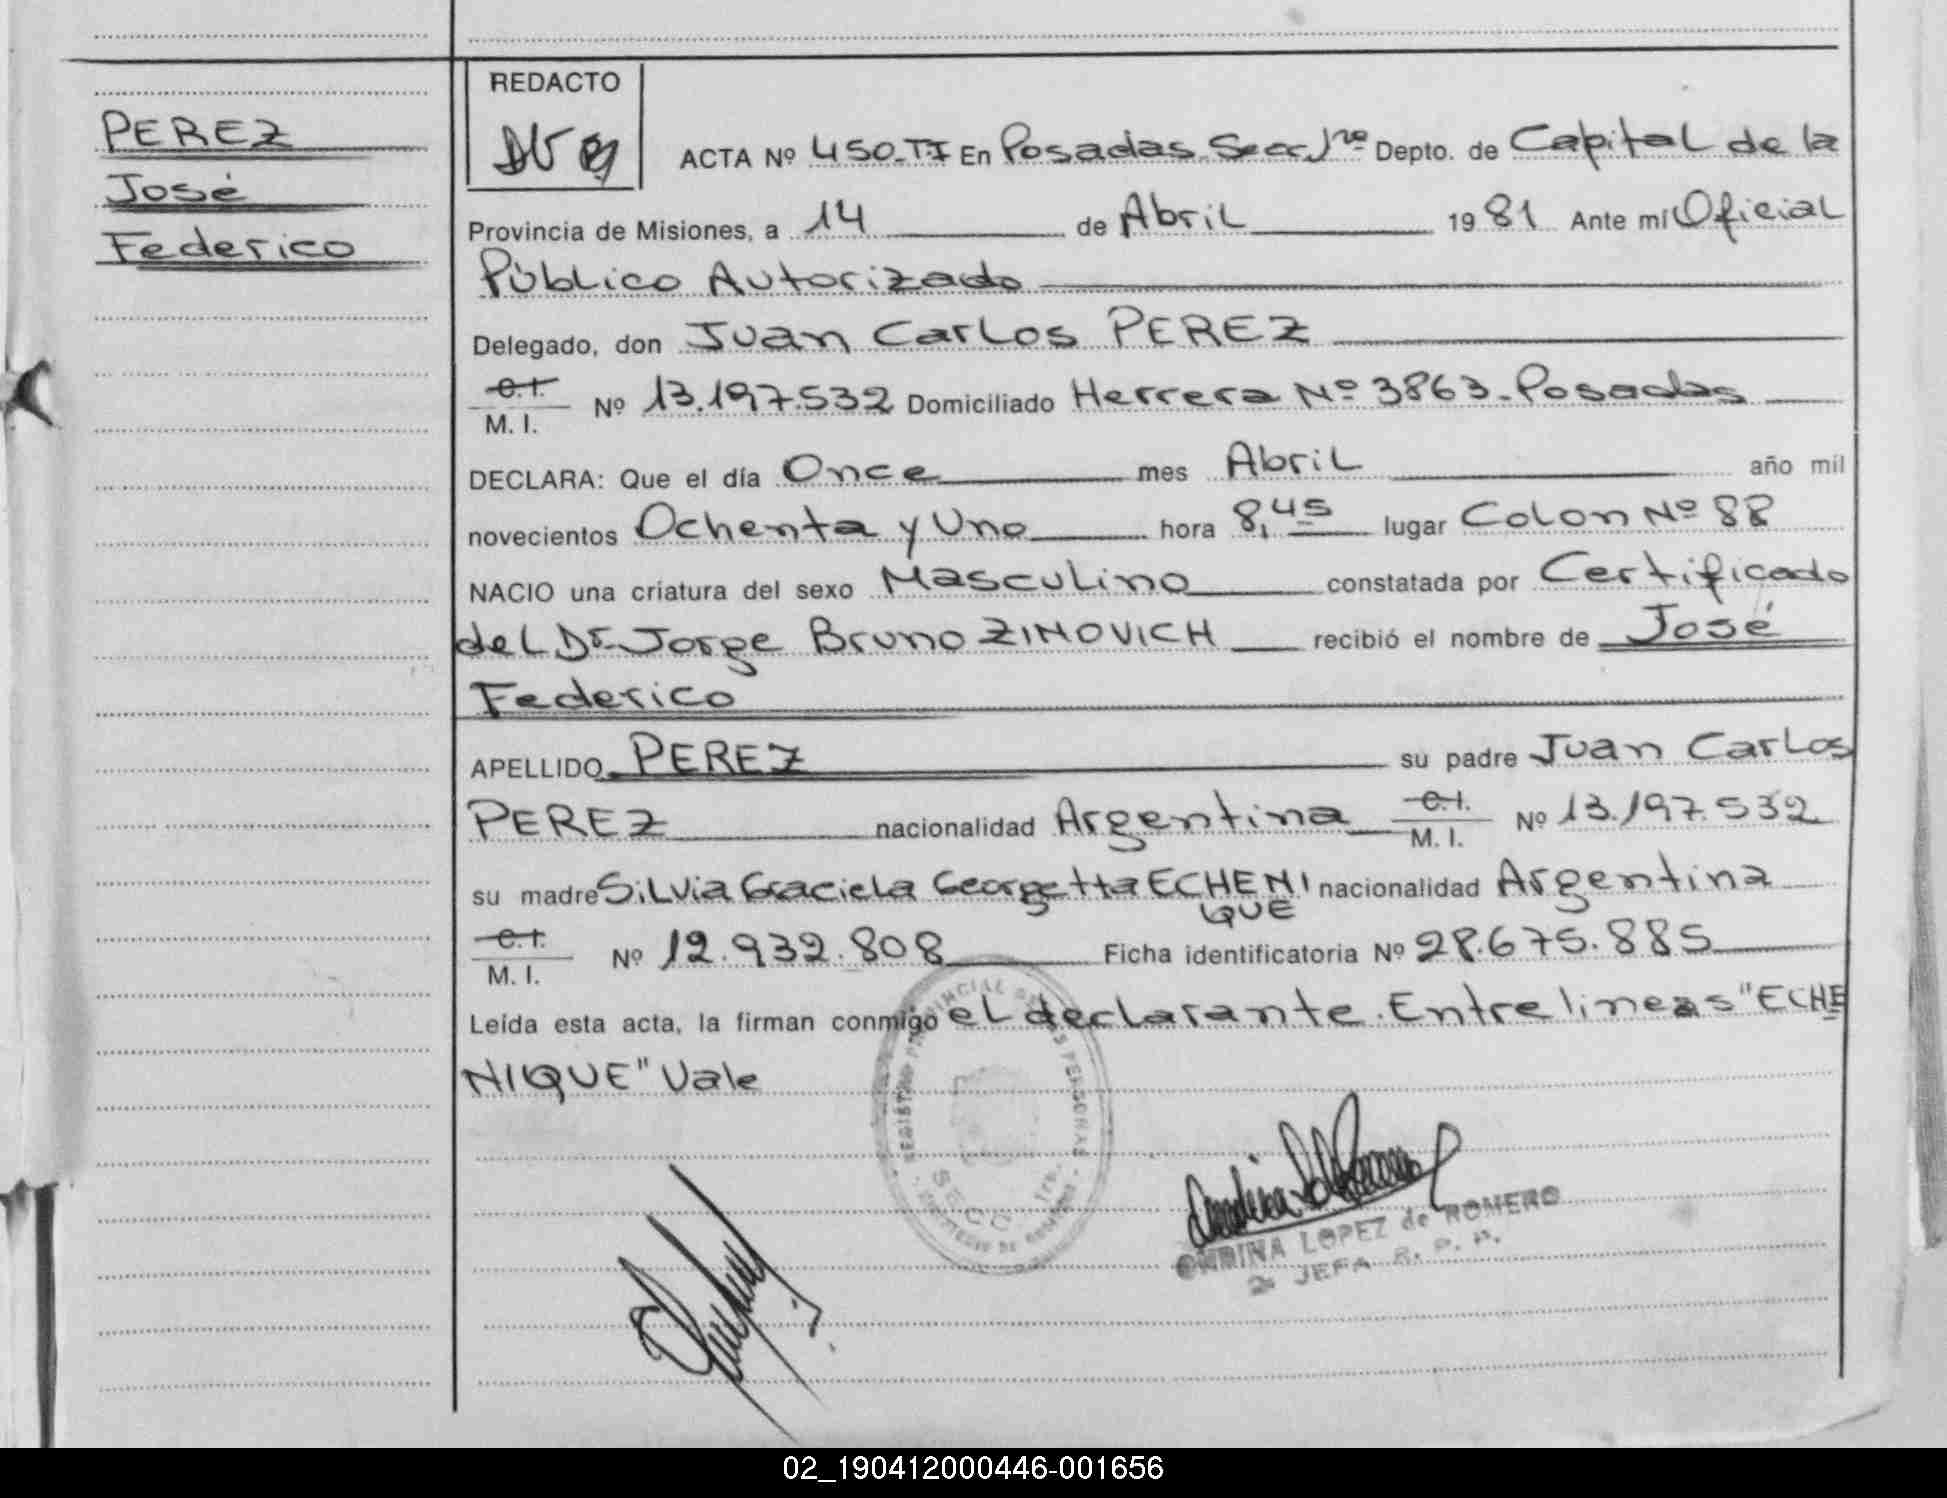 PEREZ
José
Federico
REDACTO
ACTA Nº 450-TI En Posadas Secc. 1ra Depto. de Capital de la
Provincia de Misiones, a 14 de Abril 1981 Ante mí Oficial
Público Autorizado
Delegado, don Juan Carlos PEREZ
C.I.
M. I. Nº 13.197.532 Domiciliado Herrera Nº 3863-Posadas
DECLARA: Que el día Once mes Abril año mil
novecientos Ochenta y Uno hora 8,45 lugar Colon Nº 88
NACIO una criatura del sexo Masculino constatada por Certificado
del Dr. Jorge Bruno ZINOVICH recibió el nombre de José
Federico
APELLIDO PEREZ su padre Juan Carlos
PEREZ nacionalidad Argentina C.I. M. I. Nº 13.197.532
su madre Silvia Graciela Georgetta ECHENI nacionalidad Argentina
QUE
C.I.
M. I. Nº 12.932.808 Ficha identificatoria Nº 28.675.885
Leída esta acta, la firman conmigo el declarante. Entre lineas "ECHE
NIQUE" Vale
REGISTRO PROVINCIAL DE LAS PERSONAS
SECC. 1ra.
LOPEZ de ROMERO
2ª JEFA R. P. P.
02_190412000446-001656